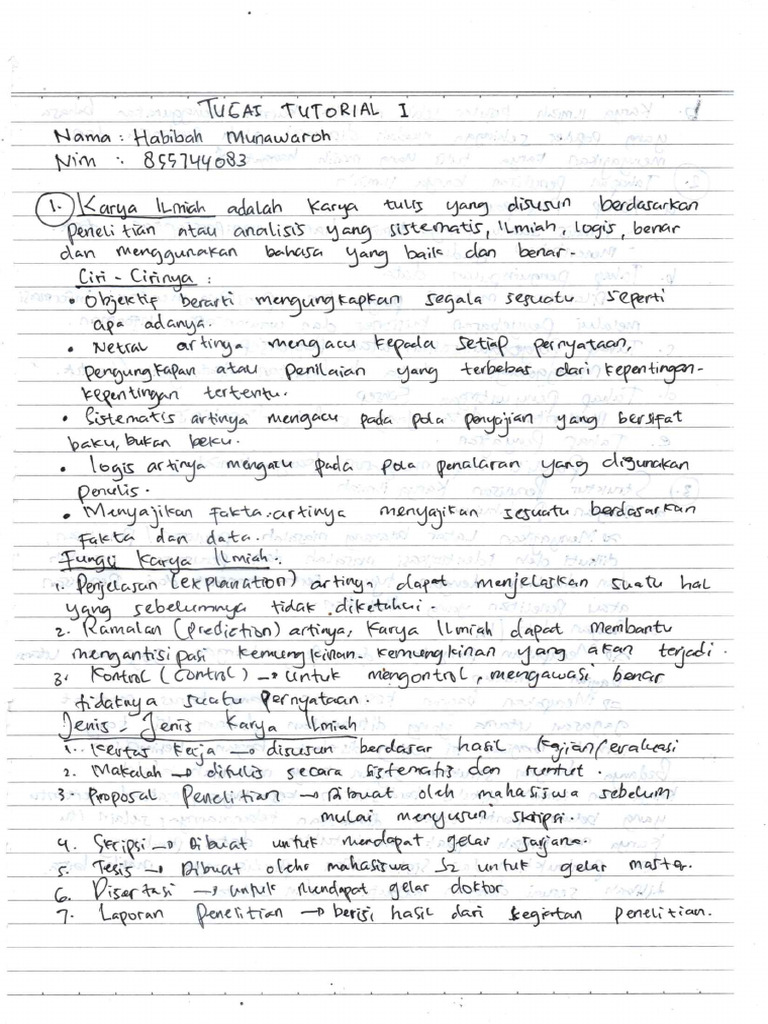 TUGAS TUTORIAL I
Nama : Habibah Munawaroh
Nim : 855744083
1. Karya Ilmiah adalah Karya tulis yang disusun berdasarkan
penelitian atau analisis yang sistematis, Ilmiah, logis, benar
dan menggunakan bahasa yang baik dan benar.
Ciri - Cirinya :
• Objektif berarti mengungkapkan segala sesuatu seperti
apa adanya.
• Netral artinya mengacu kepada setiap pernyataan,
pengungkapan atau penilaian yang terbebas dari kepentingan-
kepentingan tertentu.
• Sistematis artinya mengacu pada pola penyajian yang bersifat
baku, bukan beku.
• Logis artinya mengacu pada pola penalaran yang digunakan
penulis.
• Menyajikan fakta artinya menyajikan sesuatu berdasarkan
fakta dan data.
Fungsi Karya Ilmiah :
1. Penjelasan (explanation) artinya dapat menjelaskan suatu hal
yang sebelumnya tidak diketahui.
2. Ramalan (prediction) artinya, Karya Ilmiah dapat membantu
mengantisipasi kemungkinan-kemungkinan yang akan terjadi.
3. Kontrol (control) → untuk mengontrol, mengawasi benar
tidaknya suatu pernyataan.
Jenis - Jenis Karya Ilmiah
1. Kertas Kerja → disusun berdasar hasil kajian/evaluasi
2. Makalah → ditulis secara sistematis dan runtut.
3. Proposal Penelitian → Dibuat oleh mahasiswa sebelum
mulai menyusun skripsi.
4. Skripsi → Dibuat untuk mendapat gelar sarjana.
5. Tesis → Dibuat oleh mahasiswa S2 untuk gelar master.
6. Disertasi → untuk mendapat gelar doktor
7. Laporan Penelitian → berisi hasil dari kegiatan penelitian.